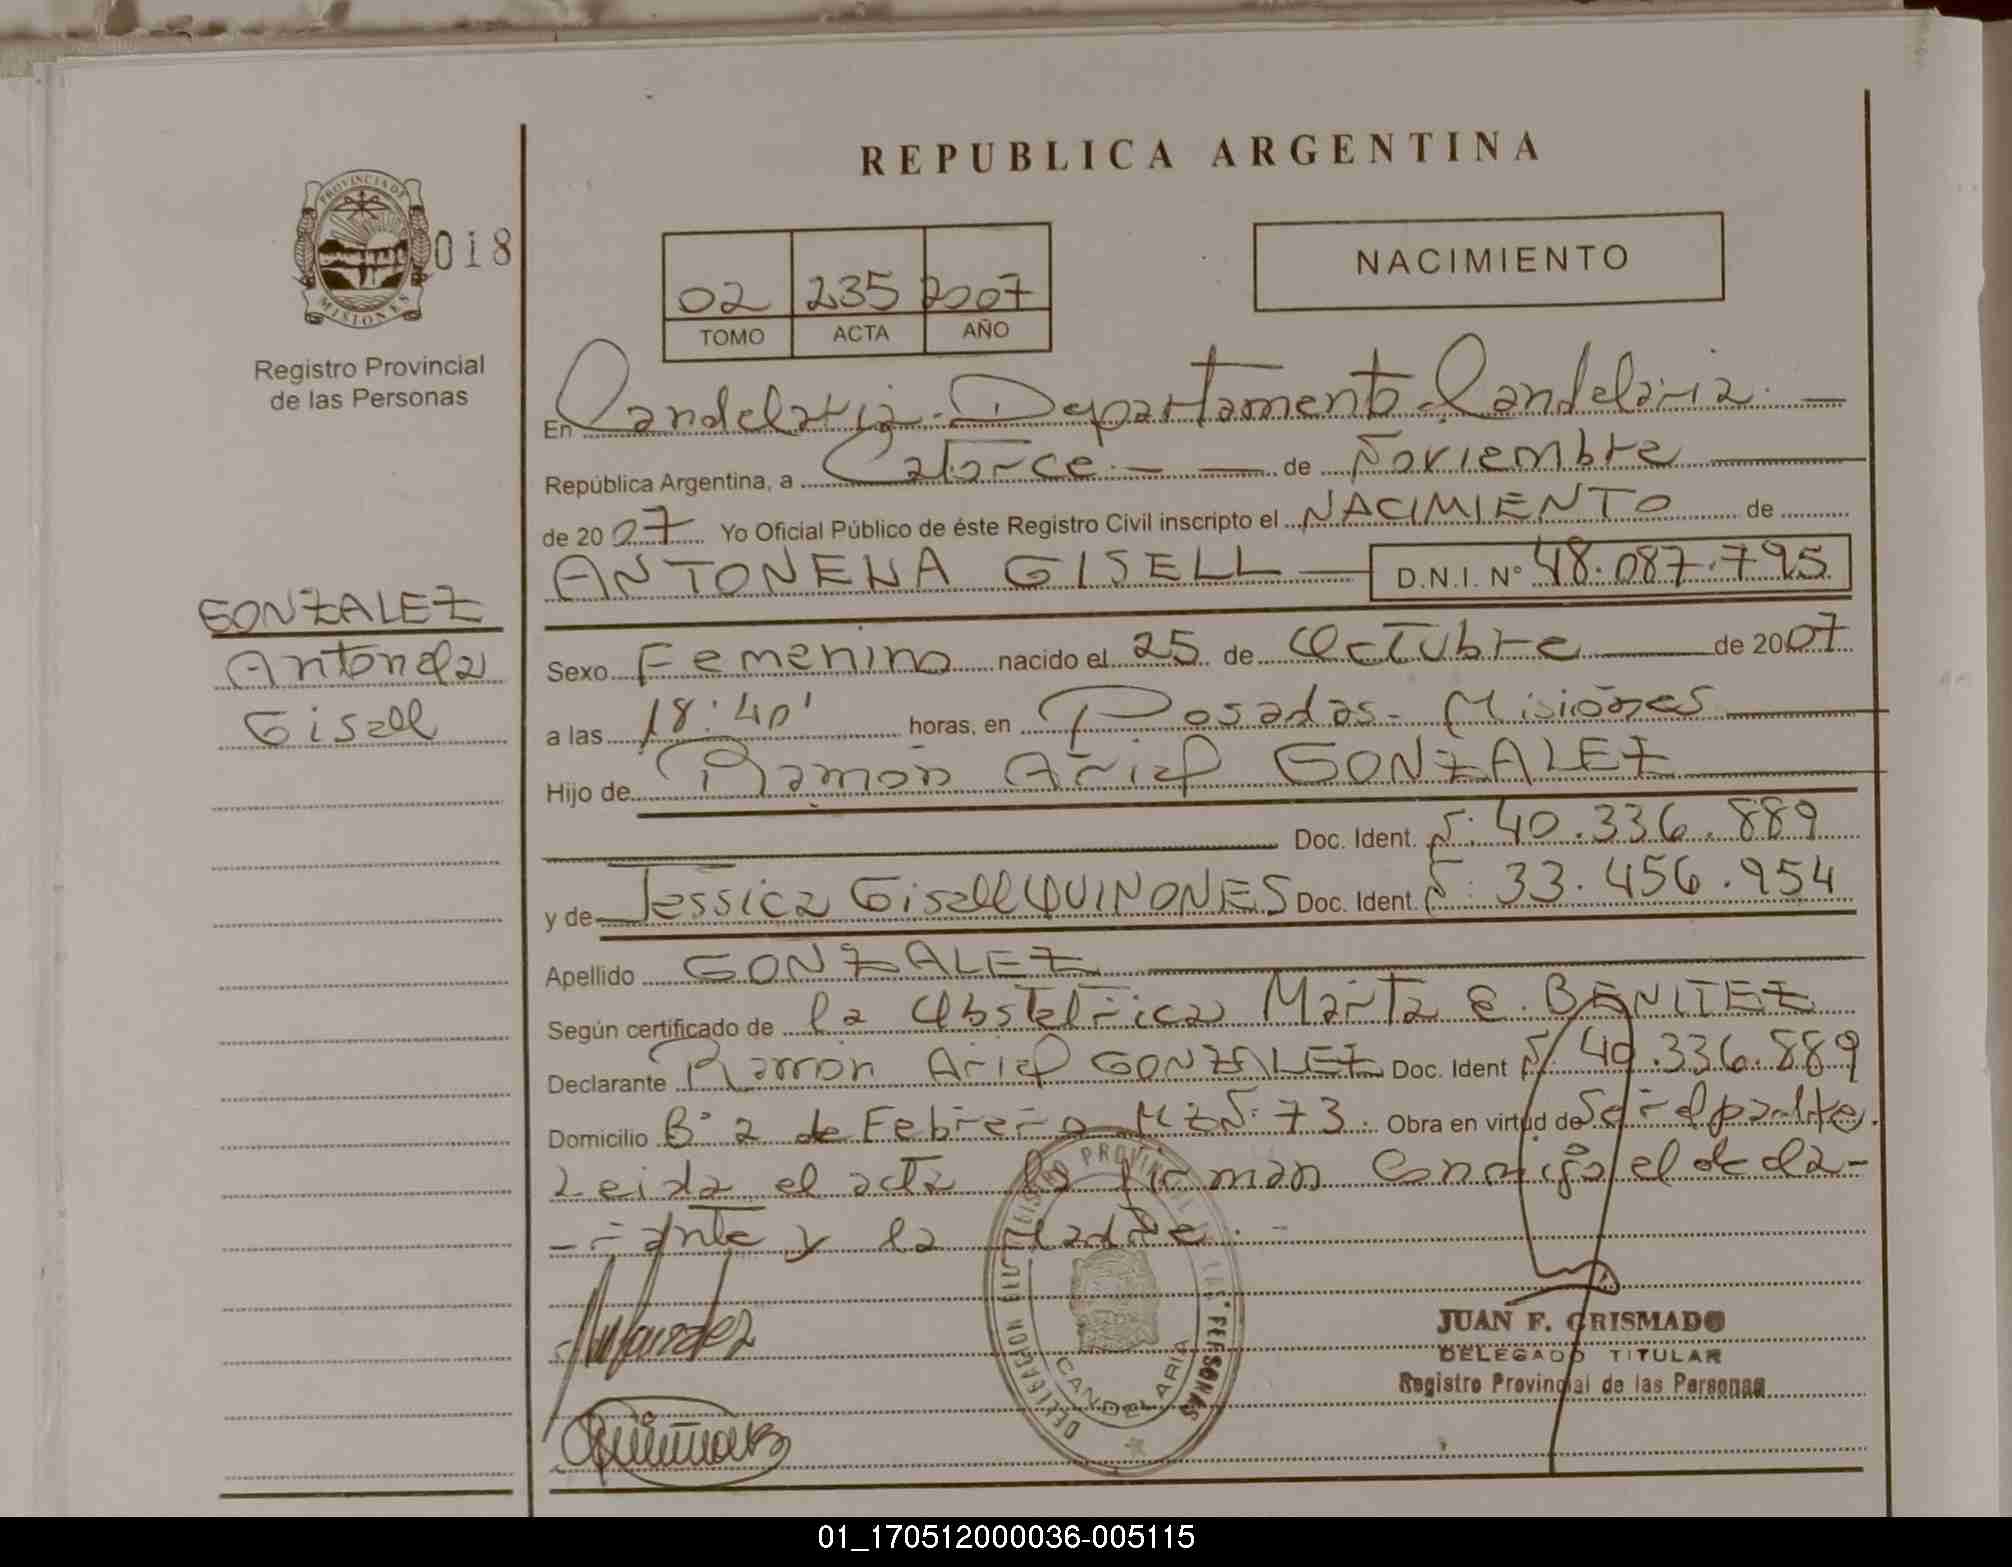 REPUBLICA ARGENTINA
PROVINCIA DE MISIONES
018
Registro Provincial
de las Personas
02 235 2007
TOMO ACTA AÑO
NACIMIENTO
En Candelaria - Departamento Candelaria. —
República Argentina, a Catorce. — — de Noviembre
de 2007 Yo Oficial Público de éste Registro Civil inscripto el NACIMIENTO de
ANTONELLA GISELL — D.N.I. Nº 48.087.795
GONZALEZ
Antonela
Gisell
Sexo Femenino nacido el 25 de Octubre de 2007
a las 18:40' horas, en Posadas - Misiones
Hijo de Ramón Ariel GONZALEZ
Doc. Ident. Nº 40.336.889
y de Jessica Gisell QUINONES Doc. Ident. Nº 33.456.954
Apellido GONZALEZ
Según certificado de la Obstetrica Marta E. BENITEZ
Declarante Ramón Ariel GONZALEZ Doc. Ident Nº 40.336.889
Domicilio Bº 2 de Febrero Mz Nº 73. Obra en virtud de Ser el padre.
Leida el acta la firman conmigo el decla-
-rante y la Madre.
DELEGACION DEL REGISTRO PROVINCIAL DE LAS PERSONAS
CANDELARIA
JUAN F. CRISMADO
DELEGADO TITULAR
Registro Provincial de las Personas
01_170512000036-005115